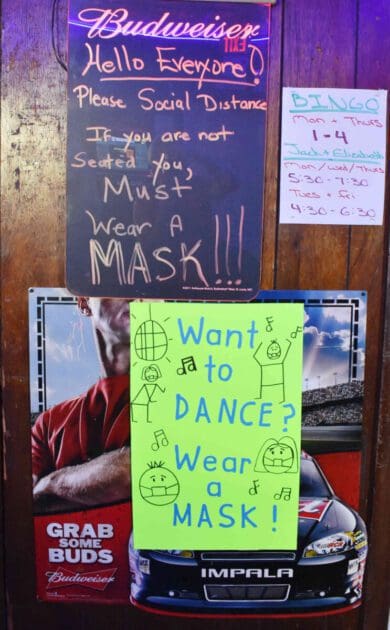 Budweiser
EXIT
Hello Everyone!
Please Social Distance
If you are not
Seated You,
Must
Wear A
MASK!!!
BINGO
Mon + Thurs
1-4
Jack + Elizabeth
Mon/Wed/Thurs
5:30 - 7:30
Tues + Fri
4:30 - 6:30
Want
to
DANCE?
Wear
a
MASK!
GRAB
SOME
BUDS
Budweiser
IMPALA